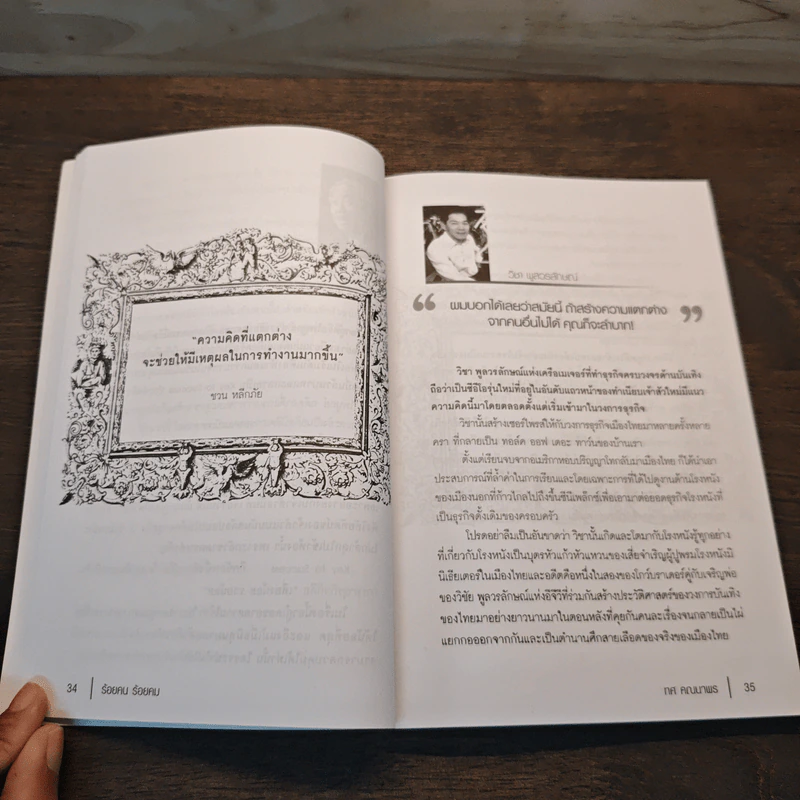 "ความคิดที่แตกต่าง
จะช่วยให้มีเหตุผลในการทำงานมากขึ้น"
ชวน หลีกภัย
34 | ร้อยคน ร้อยคม
วิชา พูลวรลักษณ์
“ ผมบอกได้เลยว่าสมัยนี้ ถ้าสร้างความแตกต่าง
จากคนอื่นไม่ได้ คุณก็จะลำบาก! ”
วิชา พูลวรลักษณ์แห่งเครือเมเจอร์ที่ทำธุรกิจครบวงจรด้านบันเทิง
ถือว่าเป็นซีอีโอรุ่นใหม่ที่อยู่ในอันดับแถวหน้าของทำเนียบเจ้าสัวใหม่มีแนว
ความคิดนี้มาโดยตลอดตั้งแต่เริ่มเข้ามาในวงการธุรกิจ
วิชานั้นสร้างเซอร์ไพรส์ให้กับวงการธุรกิจเมืองไทยมาหลายครั้งหลาย
ครา ที่กลายเป็น ทอล์ค ออฟ เดอะ ทาว์นของบ้านเรา
ตั้งแต่เรียนจบจากอเมริกาหอบปริญญาโทกลับมาเมืองไทย ก็ได้นำเอา
ประสบการณ์ที่ล้ำค่าในการเรียนและโดยเฉพาะการที่ได้ไปดูงานด้านโรงหนัง
ของเมืองนอกที่ก้าวไกลไปถึงขั้นซีนีเพล็กซ์เพื่อเอามาต่อยอดธุรกิจโรงหนังที่
เป็นธุรกิจดั้งเดิมของครอบครัว
โปรดอย่าลืมเป็นอันขาดว่า วิชานั้นเกิดและโตมากับโรงหนังรู้ทุกอย่าง
ที่เกี่ยวกับโรงหนังเป็นบุตรหัวแก้วหัวแหวนของเสี่ยจำเริญผู้ปูพรมโรงหนังมิ
นิเธียเตอร์ในเมืองไทยและอดีตคือหนึ่งในสองของโกว์บราเดอร์คู่กับเจริญพ่อ
ของวิชัย พูลวรลักษณ์แห่งอีจีวีที่ร่วมกันสร้างประวัติศาสตร์ของวงการบันเทิง
ของไทยมาอย่างยาวนานมาในตอนหลังที่คุยกันคนละเรื่องจนกลายเป็นไผ่
แยกกอออกจากกันและเป็นตำนานศึกสายเลือดของจริงของเมืองไทย
ทศ คณนาพร | 35